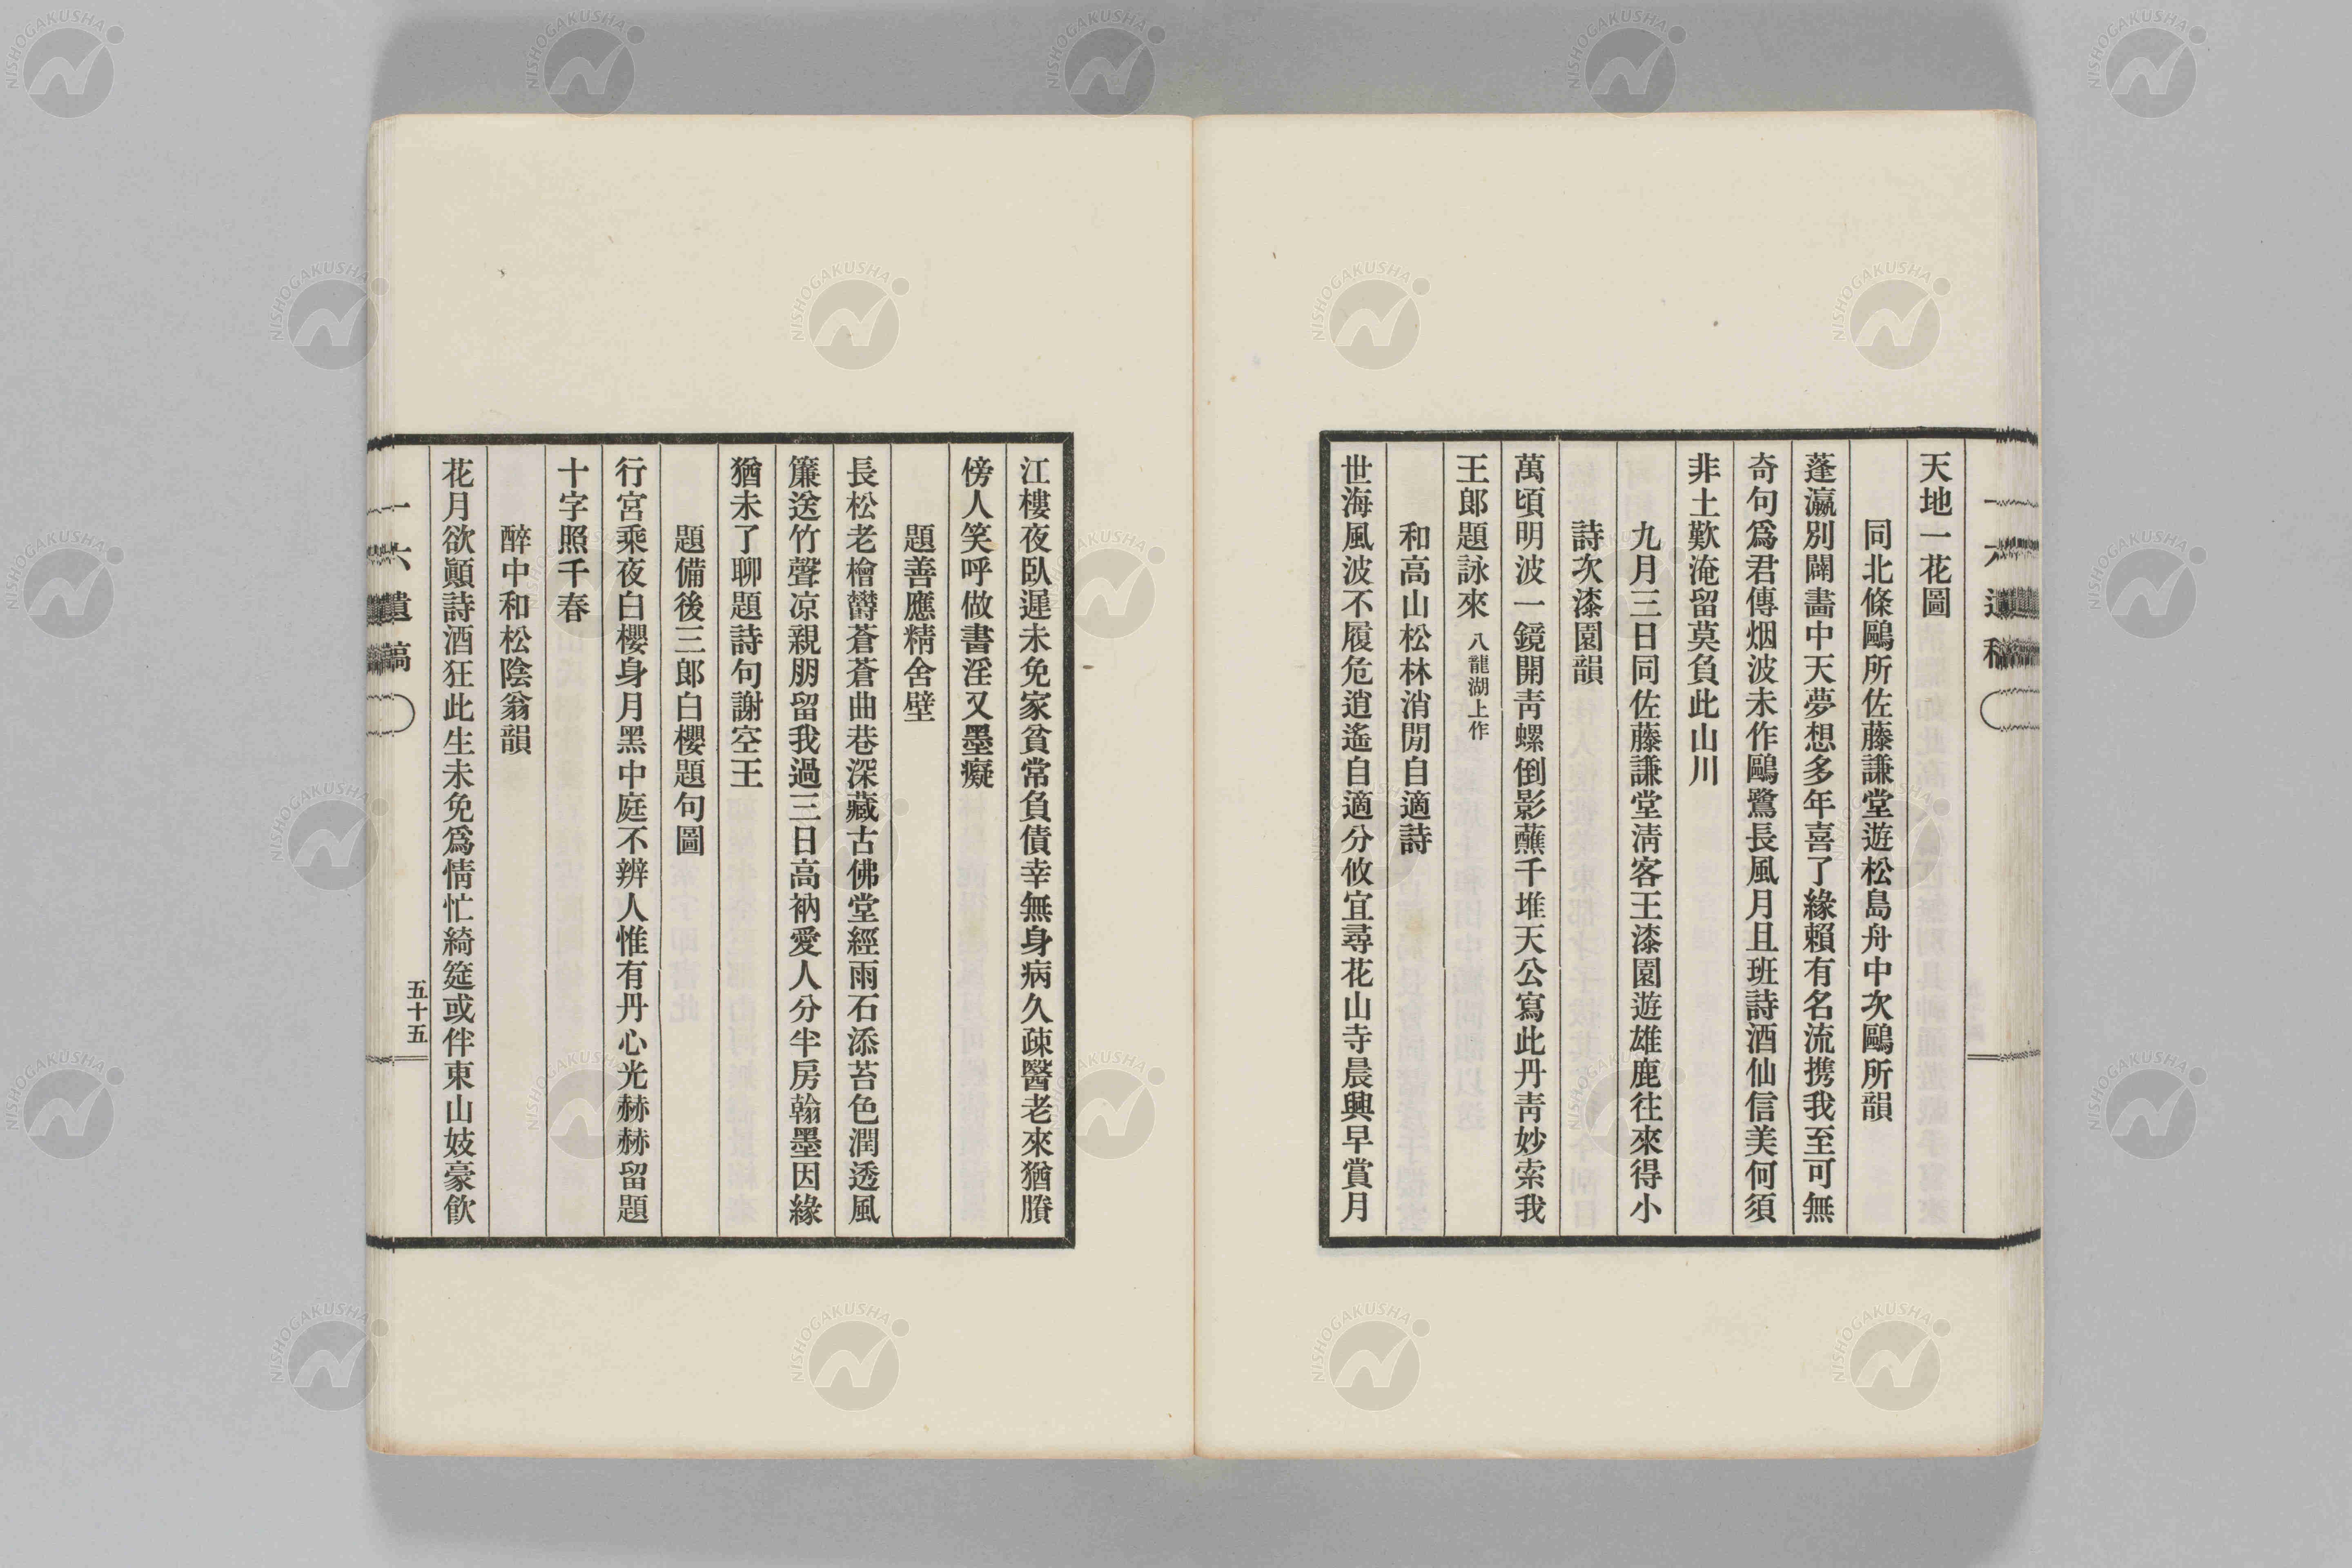 天地一花圖
同北條鷗所佐藤謙堂遊松島舟中次鷗所韻
蓬瀛別闢畵中天夢想多年喜了緣賴有名流携我至可無
奇句爲君傳烟波未作鷗鷺長風月且班詩酒仙信美何須
非土歎淹留莫負此山川
九月三日同佐藤謙堂淸客王漆園遊雄鹿往來得小
詩次漆園韻
萬頃明波一鏡開靑螺倒影蘸千堆天公寫此丹靑妙索我
王郞題詠來 八龍湖上作
和高山松林消閒自適詩
世海風波不履危逍遙自適分攸宜尋花山寺晨興早賞月
江樓夜臥遲未免家貧常負債幸無身病久疎醫老來猶賸
傍人笑呼做書淫又墨癡
題善應精舍壁
長松老檜欝蒼蒼曲巷深藏古佛堂經雨石添苔色潤透風
簾送竹聲凉親朋留我過三日高衲愛人分半房翰墨因緣
猶未了聊題詩句謝空王
題備後三郞白櫻題句圖
行宮乘夜白櫻身月黑中庭不辨人惟有丹心光赫赫留題
十字照千春
醉中和松陰翁韻
花月欲顚詩酒狂此生未免爲情忙綺筵或伴東山妓豪飮
一六遺稿
五十五
NISHOGAKUSHA